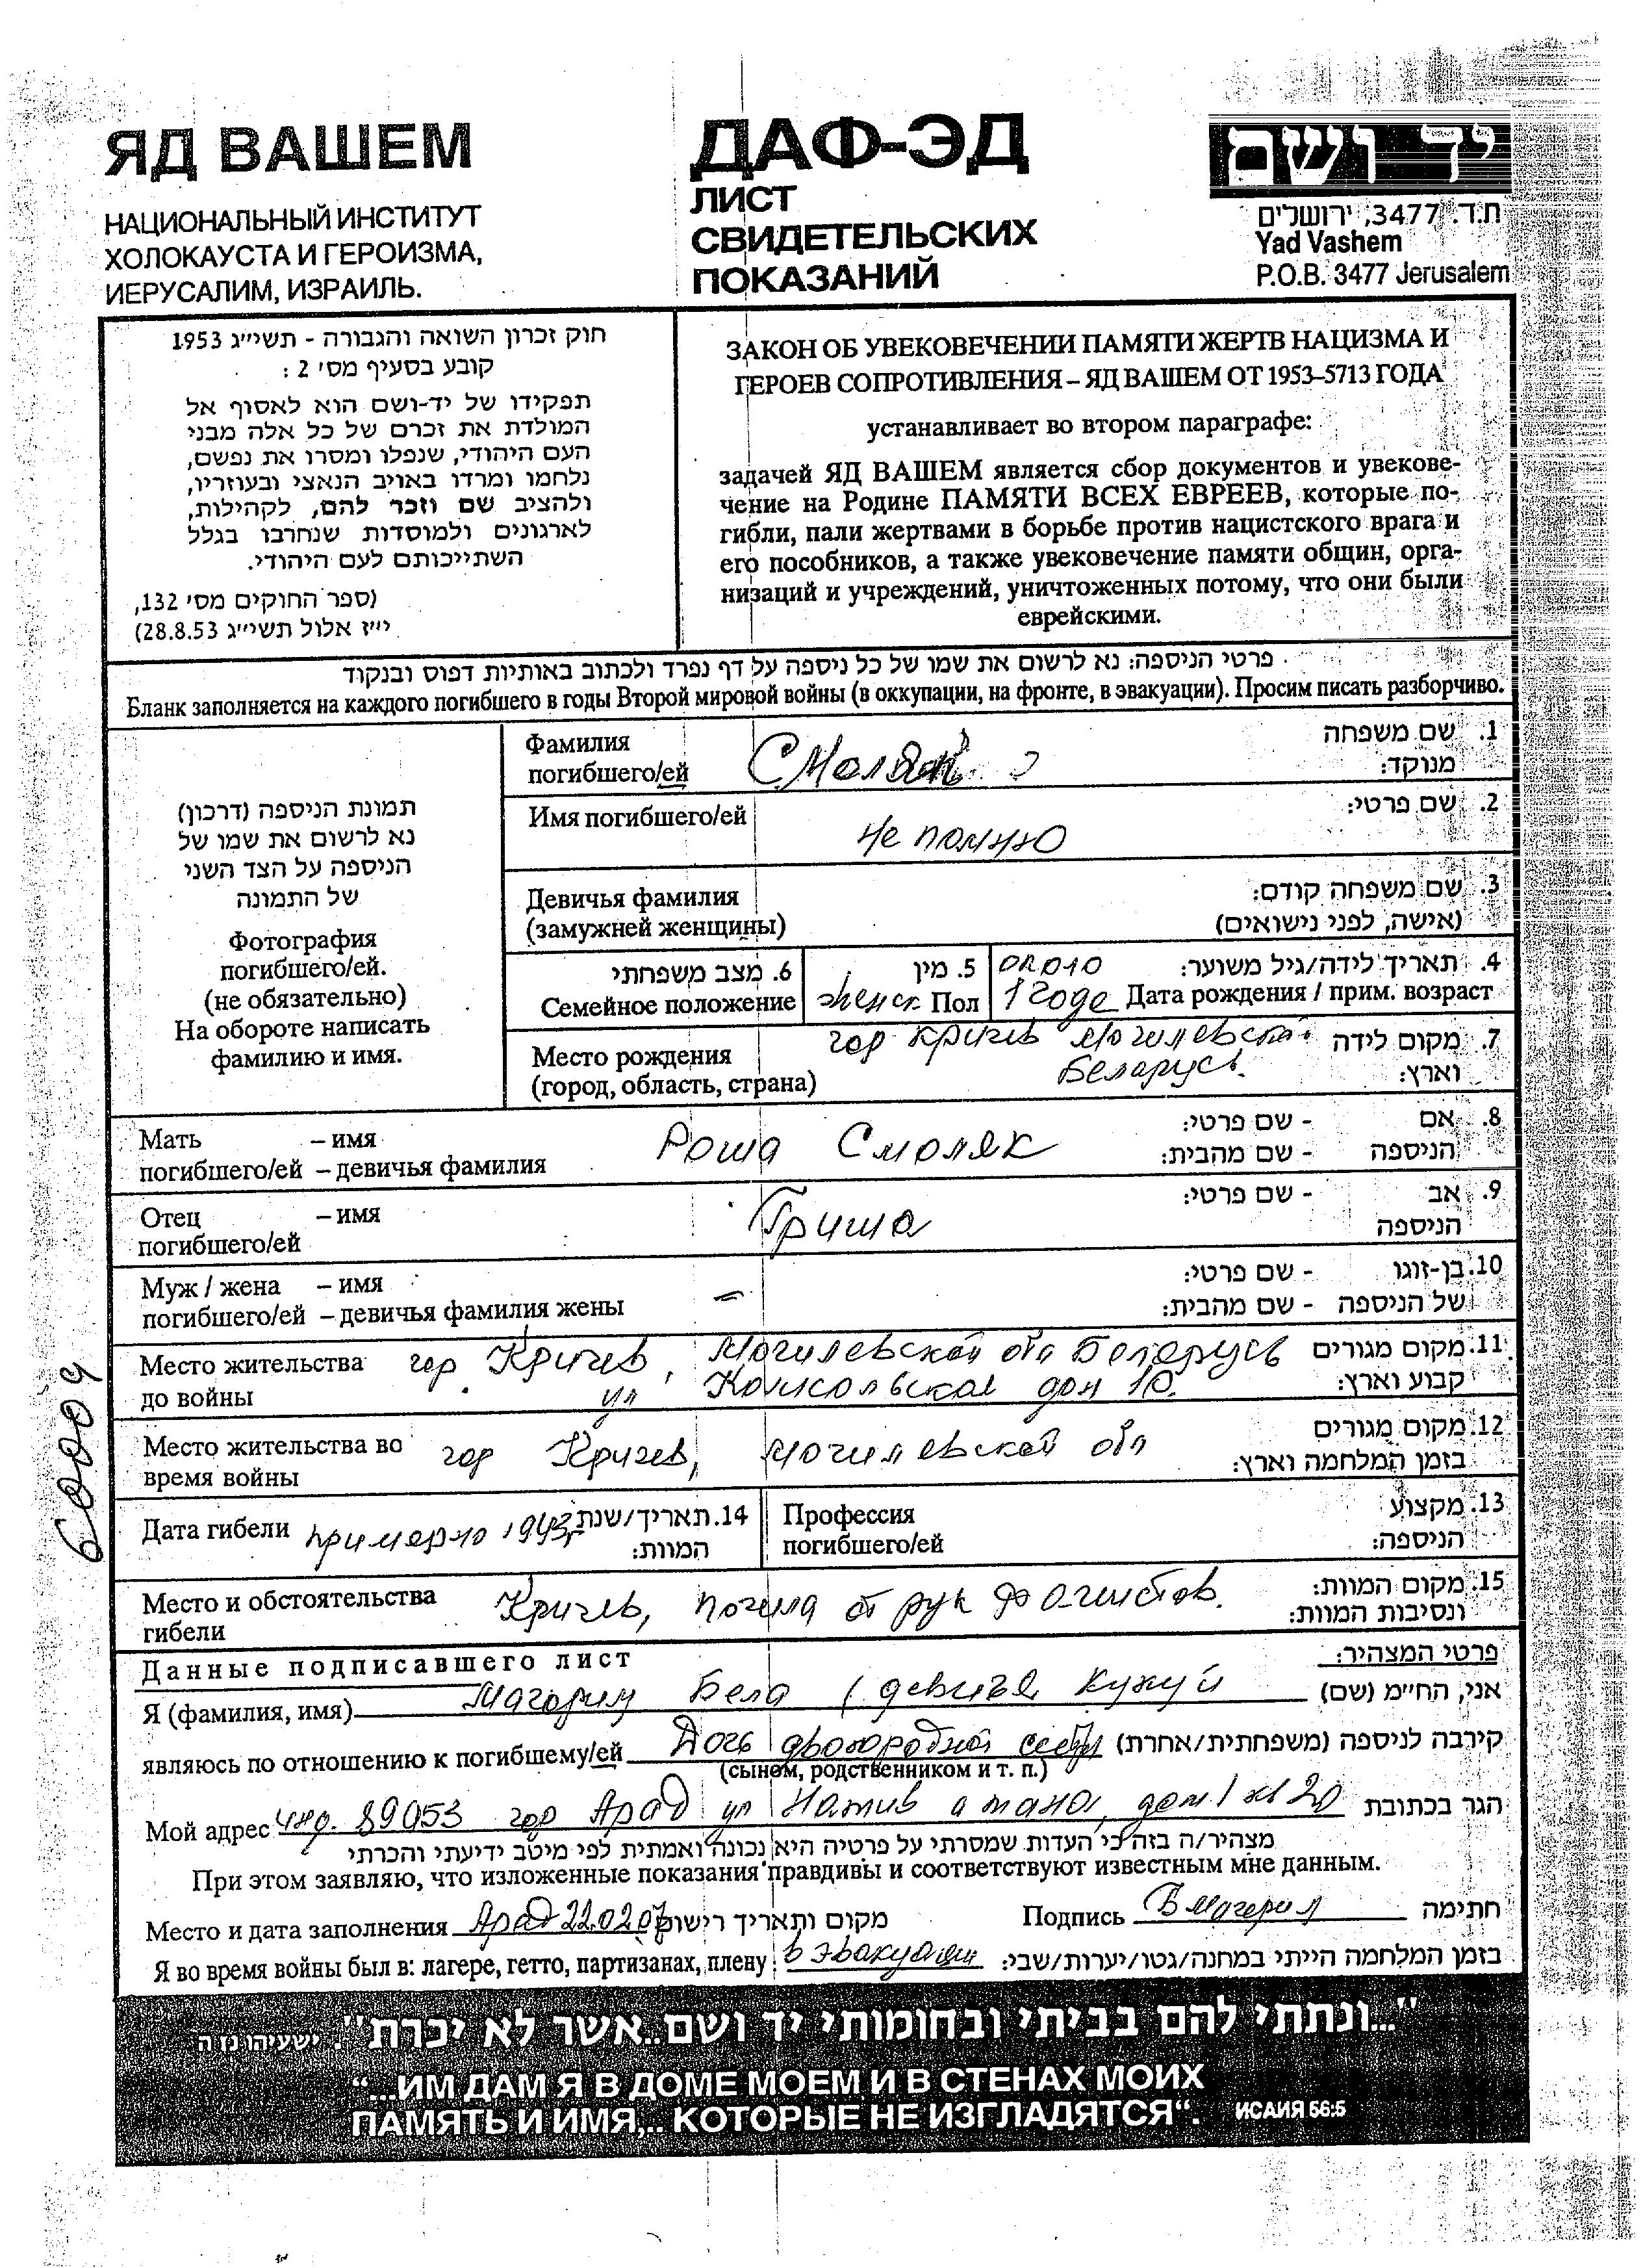 ЯД ВАШЕМ
НАЦИОНАЛЬНЫЙ ИНСТИТУТ
ХОЛОКАУСТА И ГЕРОИЗМА,
ИЕРУСАЛИМ, ИЗРАИЛЬ.
ДАФ-ЭД
ЛИСТ
СВИДЕТЕЛЬСКИХ
ПОКАЗАНИЙ
יד ושם
ת.ד. 3477, ירושלים
Yad Vashem
P.O.B. 3477 Jerusalem
חוק זכרון השואה והגבורה - תשי״ג 1953
קובע בסעיף מס׳ 2 :
תפקידו של יד-ושם הוא לאסוף אל
המולדת את זכרם של כל אלה מבני
העם היהודי, שנפלו ומסרו את נפשם,
נלחמו ומרדו באויב הנאצי ובעוזריו,
ולהציב שם וזכר להם, לקהילות,
לארגונים ולמוסדות שנחרבו בגלל
השתייכותם לעם היהודי.
(ספר החוקים מס׳ 132,
י״ז אלול תשי״ג 28.8.53)
ЗАКОН ОБ УВЕКОВЕЧЕНИИ ПАМЯТИ ЖЕРТВ НАЦИЗМА И
ГЕРОЕВ СОПРОТИВЛЕНИЯ – ЯД ВАШЕМ ОТ 1953–5713 ГОДА
устанавливает во втором параграфе:
задачей ЯД ВАШЕМ является сбор документов и увекове-
чение на Родине ПАМЯТИ ВСЕХ ЕВРЕЕВ, которые по-
гибли, пали жертвами в борьбе против нацистского врага и
его пособников, а также увековечение памяти общин, орга-
низаций и учреждений, уничтоженных потому, что они были
еврейскими.
פרטי הניספה: נא לרשום את שמו של כל ניספה על דף נפרד ולכתוב באותיות דפוס ובנקוד
Бланк заполняется на каждого погибшего в годы Второй мировой войны (в оккупации, на фронте, в эвакуации). Просим писать разборчиво.
תמונת הניספה (דרכון)
נא לרשום את שמו של
הניספה על הצד השני
של התמונה
Фотография
погибшего/ей.
(не обязательно)
На обороте написать
фамилию и имя.
Фамилия
погибшего/ей Смоляк
1. שם משפחה
מנוקד:
Имя погибшего/ей не помню
2. שם פרטי:
Девичья фамилия
(замужней женщины)
3. שם משפחה קודם:
(אישה, לפני נישואים)
6. מצב משפחתי
Семейное положение
5. מין
женск Пол
4. תאריך לידה/גיל משוער:
около
1 года Дата рождения / прим. возраст
Место рождения
(город, область, страна)
гор Кричев Могилевская
Беларусь.
7. מקום לידה
וארץ:
Мать – имя
погибшего/ей – девичья фамилия
Роша Смоляк
8. אם - שם פרטי:
הניספה - שם מהבית:
Отец – имя
погибшего/ей
Гриша
9. אב - שם פרטי:
הניספה
Муж / жена – имя
погибшего/ей – девичья фамилия жены
–
10. בן-זוגו - שם פרטי:
של הניספה - שם מהבית:
Место жительства
до войны
гор Кричев, Могилевской обл Беларусь
ул дом 10.
11. מקום מגורים
קבוע וארץ:
Место жительства во
время войны
гор Кричев, Могилевской обл
12. מקום מגורים
בזמן המלחמה וארץ:
Дата гибели примерно 1943г
14. תאריך/שנת
המוות:
Профессия
погибшего/ей
13. מקצוע
הניספה:
Место и обстоятельства
гибели
Кричев, погибла от рук фашистов.
15. מקום המוות:
ונסיבות המוות:
Данные подписавшего лист
פרטי המצהיר:
Я (фамилия, имя) Магорим Бела (девичья Кужуй
אני, החי״מ (שם)
являюсь по отношению к погибшему/ей Дочь двоюродной сестры
(сыном, родственником и т. п.)
קירבה לניספה (משפחתית/אחרת)
Мой адрес инд. 89053 гор Арад ул Натив дом 1 кв 20
הגר בכתובת
מצהיר/ה בזה כי העדות שמסרתי על פרטיה היא נכונה ואמתית לפי מיטב ידיעתי והכרתי
При этом заявляю, что изложенные показания правдивы и соответствуют известным мне данным.
Место и дата заполнения Арад 22.02.07
מקום ותאריך רישום
Подпись
חתימה
Я во время войны был в: лагере, гетто, партизанах, плену: в эвакуации
בזמן המלחמה הייתי במחנה/גטו/יערות/שבי:
"...ונתתי להם בביתי ובחומותי יד ושם..אשר לא יכרת". ישעיהו נו ה
“...ИМ ДАМ Я В ДОМЕ МОЕМ И В СТЕНАХ МОИХ
ПАМЯТЬ И ИМЯ,.. КОТОРЫЕ НЕ ИЗГЛАДЯТСЯ“. ИСАИЯ 56:5